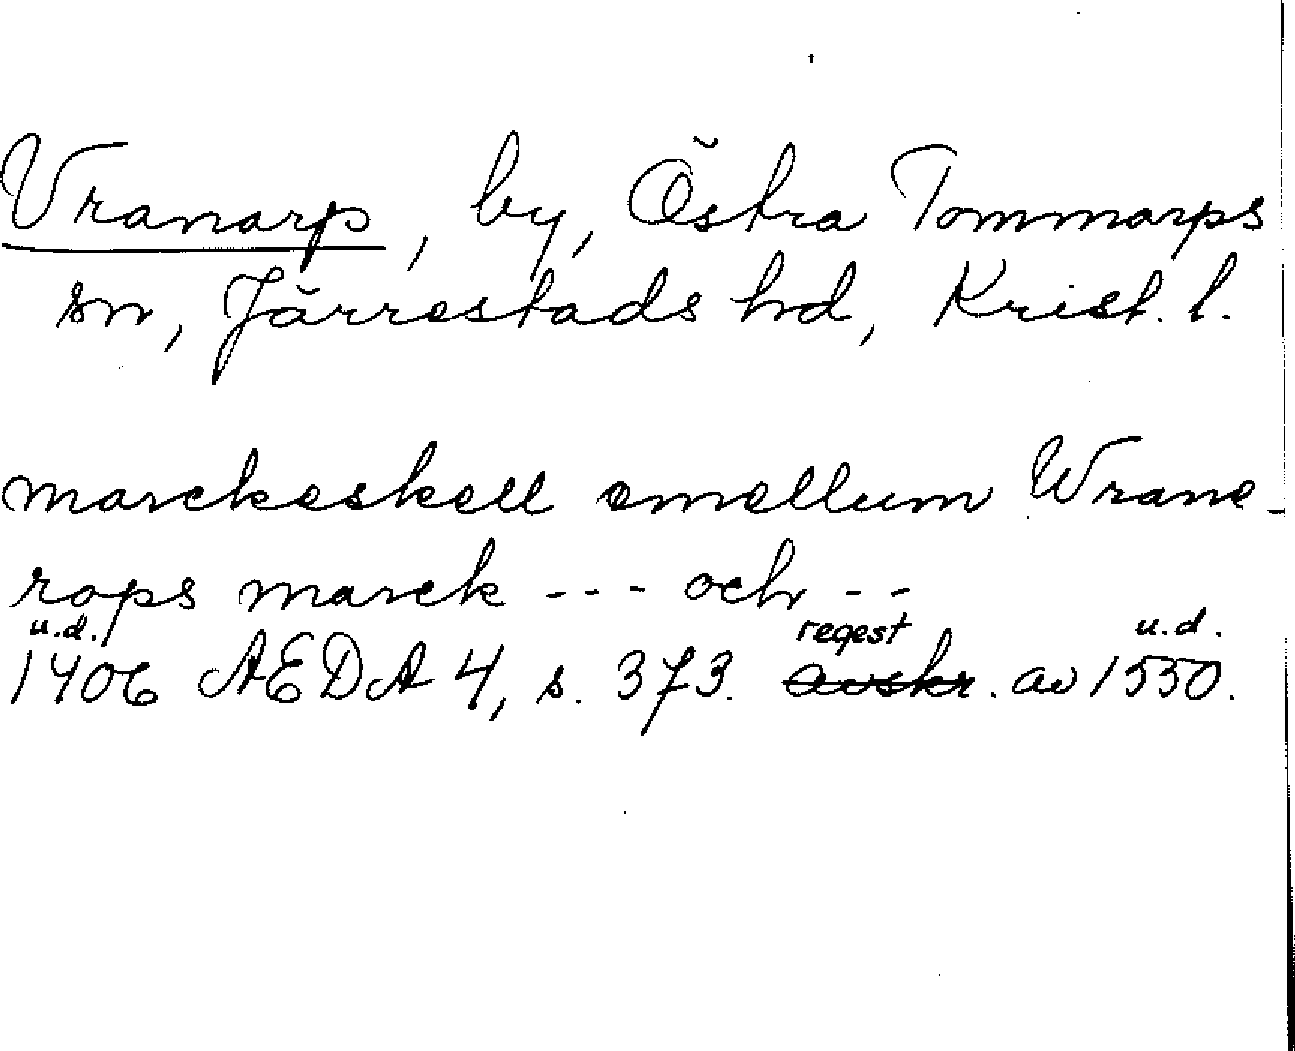 Vranarp, by, Östra Tommarps
sn, Järrestads hd, Krist. l.
marckeskell emellum Wrane-
rops marck --- och --
u.d. regest u.d.
1406 AEDA 4, s. 373. avskr. av 1550.